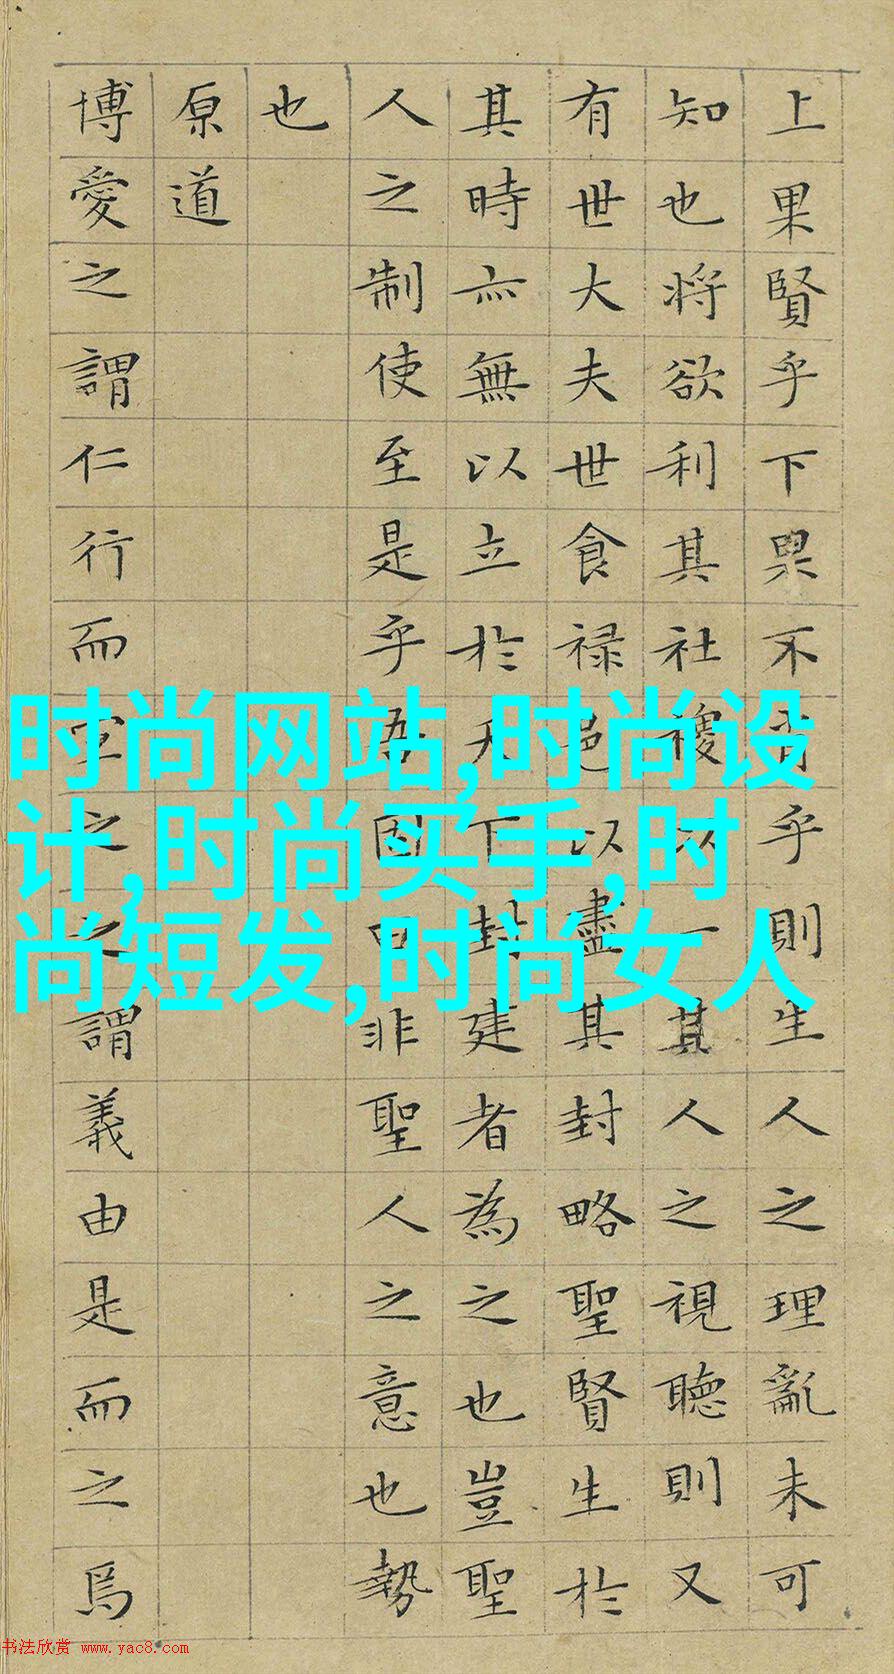 上果賢乎下果不肖乎則生人之理亂未可
知也將欲利其社稷以一其人之視聽則又
有世大夫世食禄邑以盡其封略聖賢生於
其時亦無以立於天下封建者為之也豈聖
人之制使至是乎吾固曰非聖人之意也勢
也
原道
博愛之謂仁行而宜之之謂義由是而之焉
时尚网站,时尚设
计,时尚买手,时
尚短发,时尚女人
书法欣赏 www.yac8.com